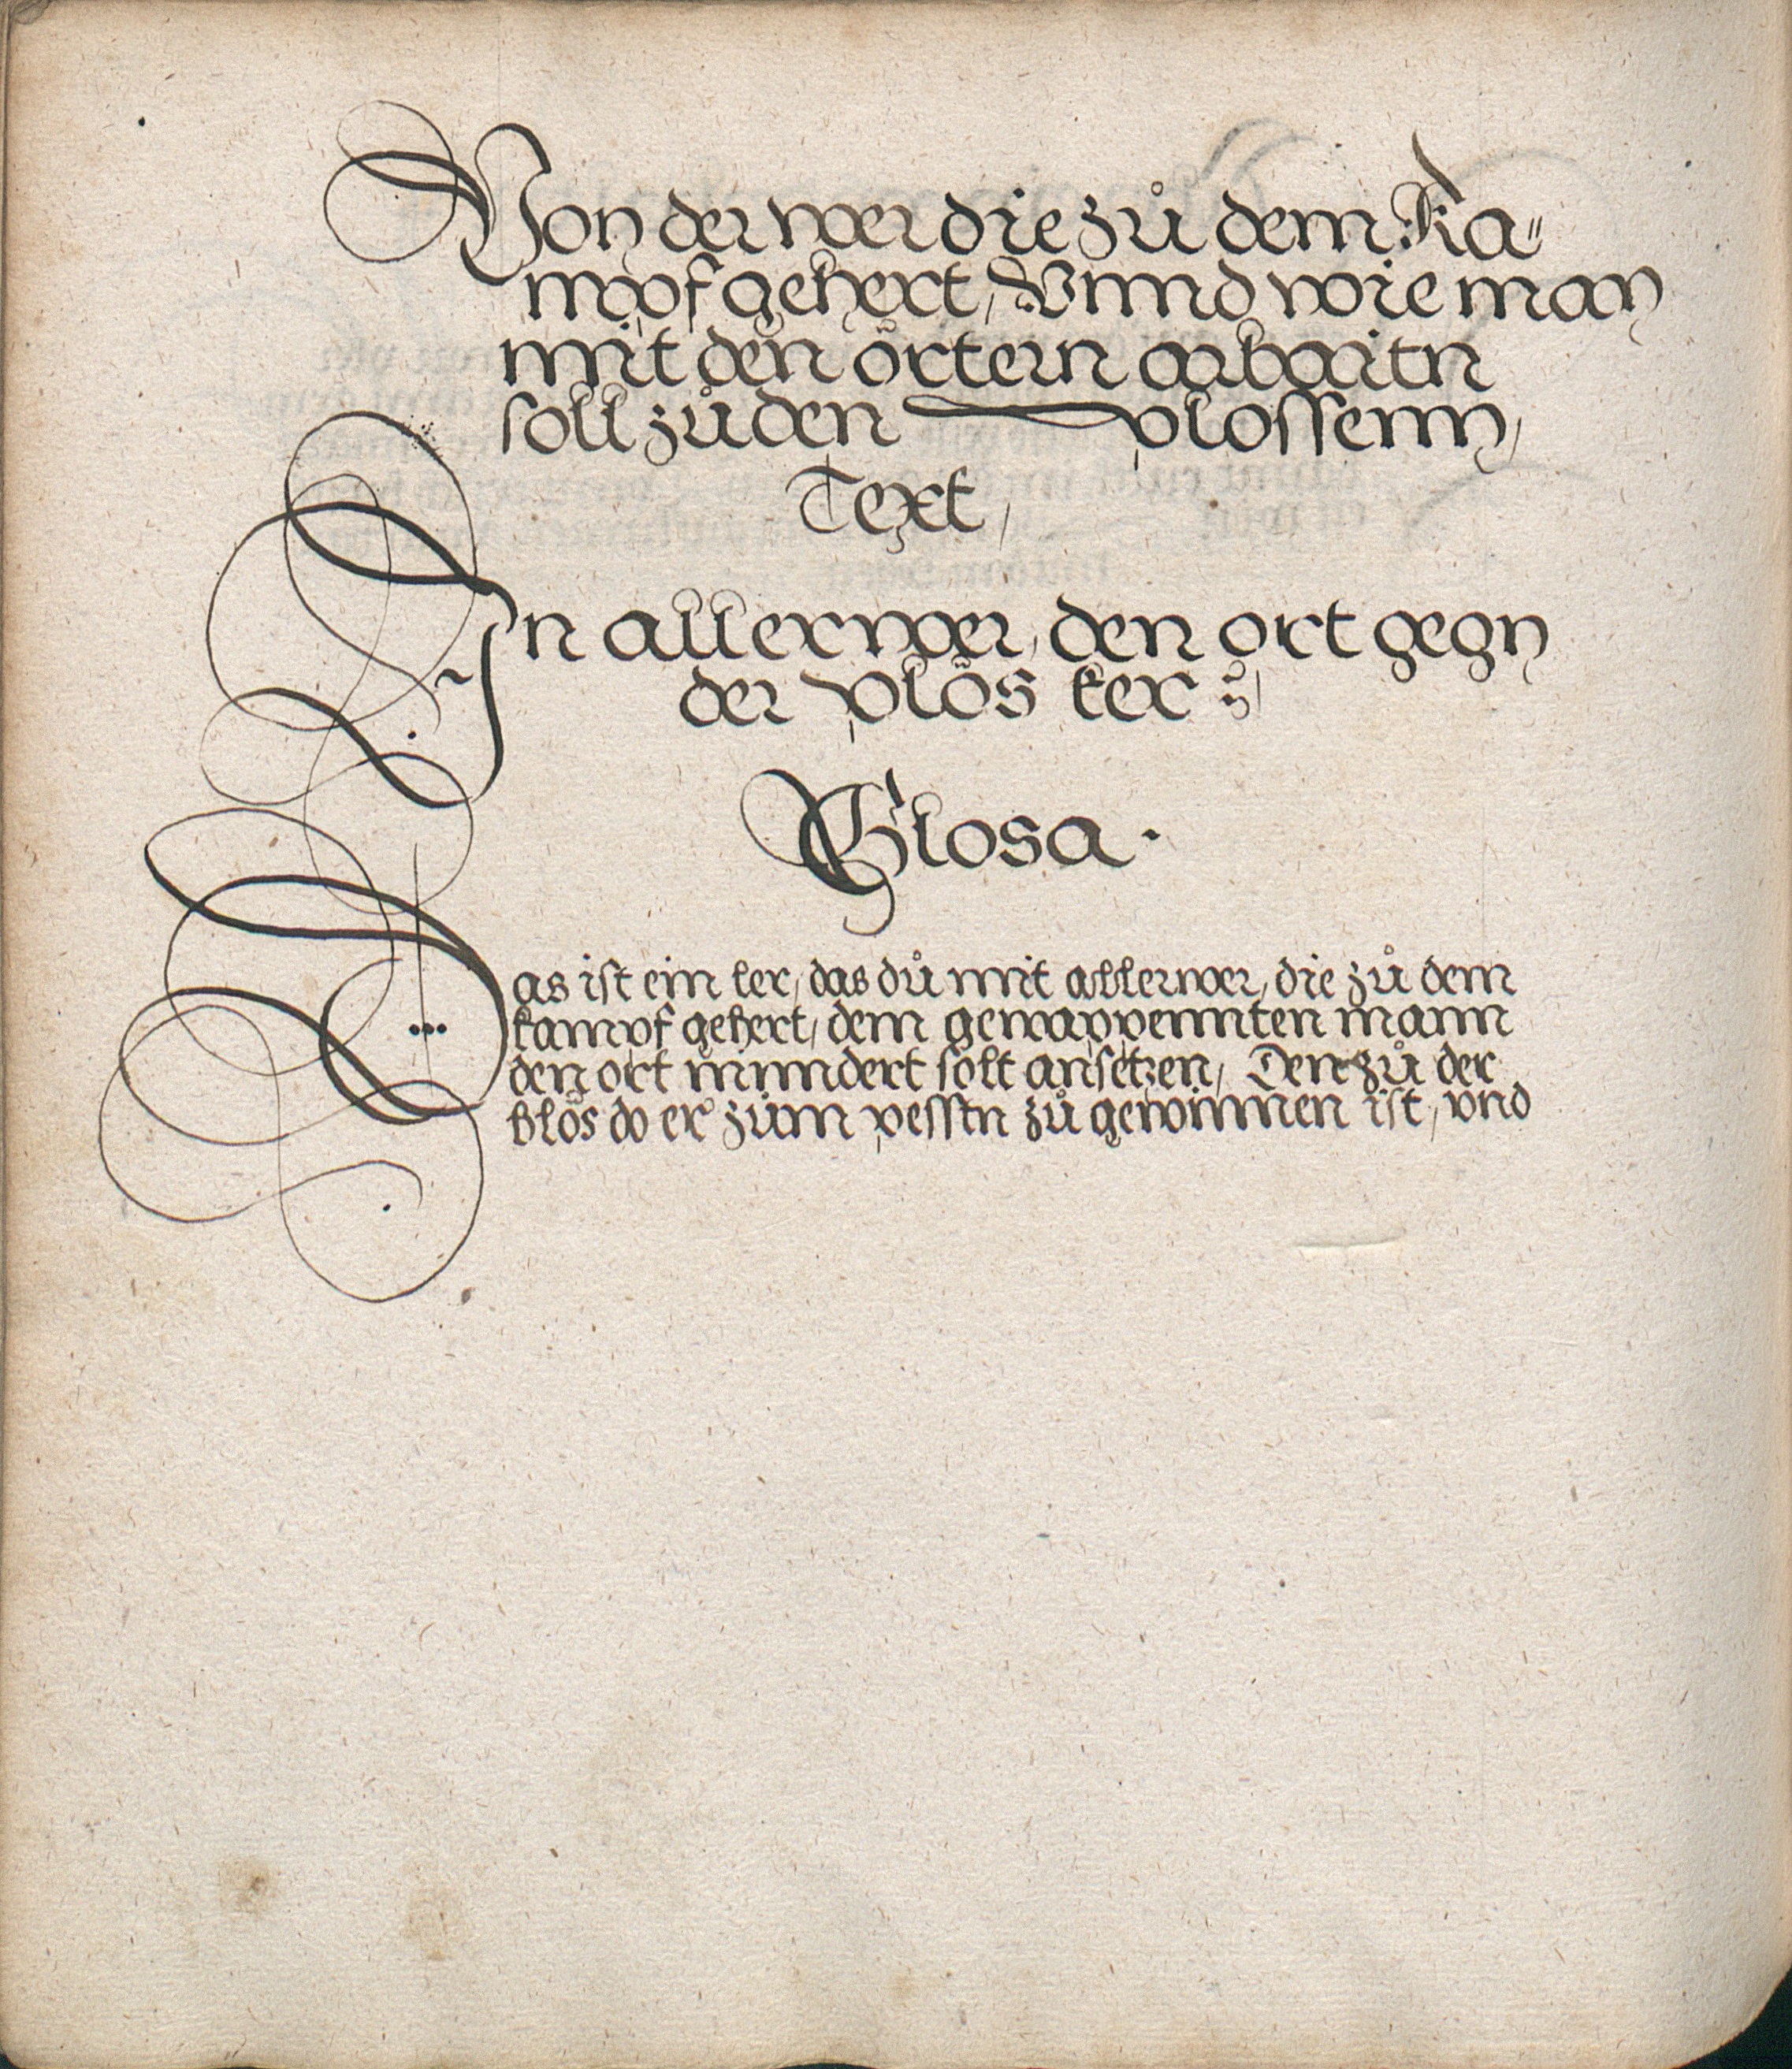 Von der wer die zů dem Ka⸗
mpf gehert, Vnnd wie man
mit den örtern arbaitn
soll zů den plossenn,
Text,
In aller wer, den ort gegn
der plös ker
Glosa.
Das ist ein ler, das dů mit aller wer, die zů dem
kampf gehert, dem gewappennten mann
den ort inndert solt ansetzen, Den zů der
blös do er zům pesstn zů gewinnen ist, vnd